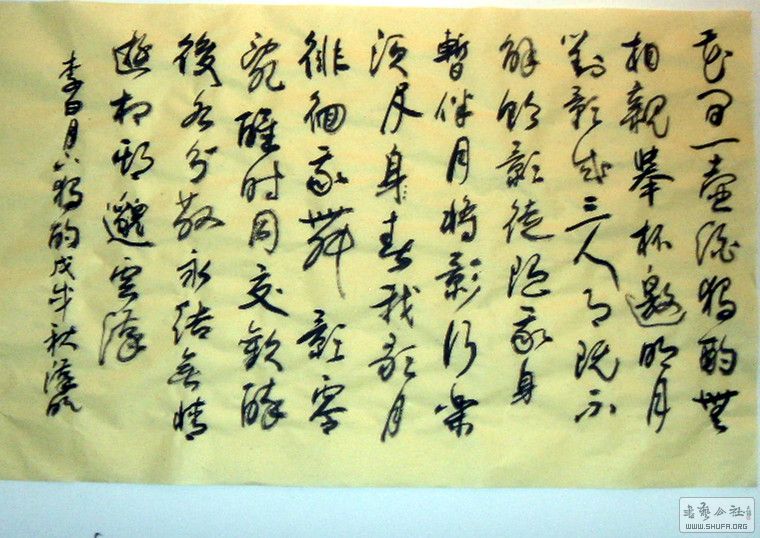 花间一壺酒獨酌無
相親舉杯邀明月
對影成三人月既不
解飲影徒隨我身
暫伴月將影行樂
須及身春我歌月
徘徊我舞影零
亂醒时同交歡醉
後各分散永結無情
遊相期邈雲漢
李白月下獨酌戊子秋
书艺公社
WWW.SHUFA.ORG